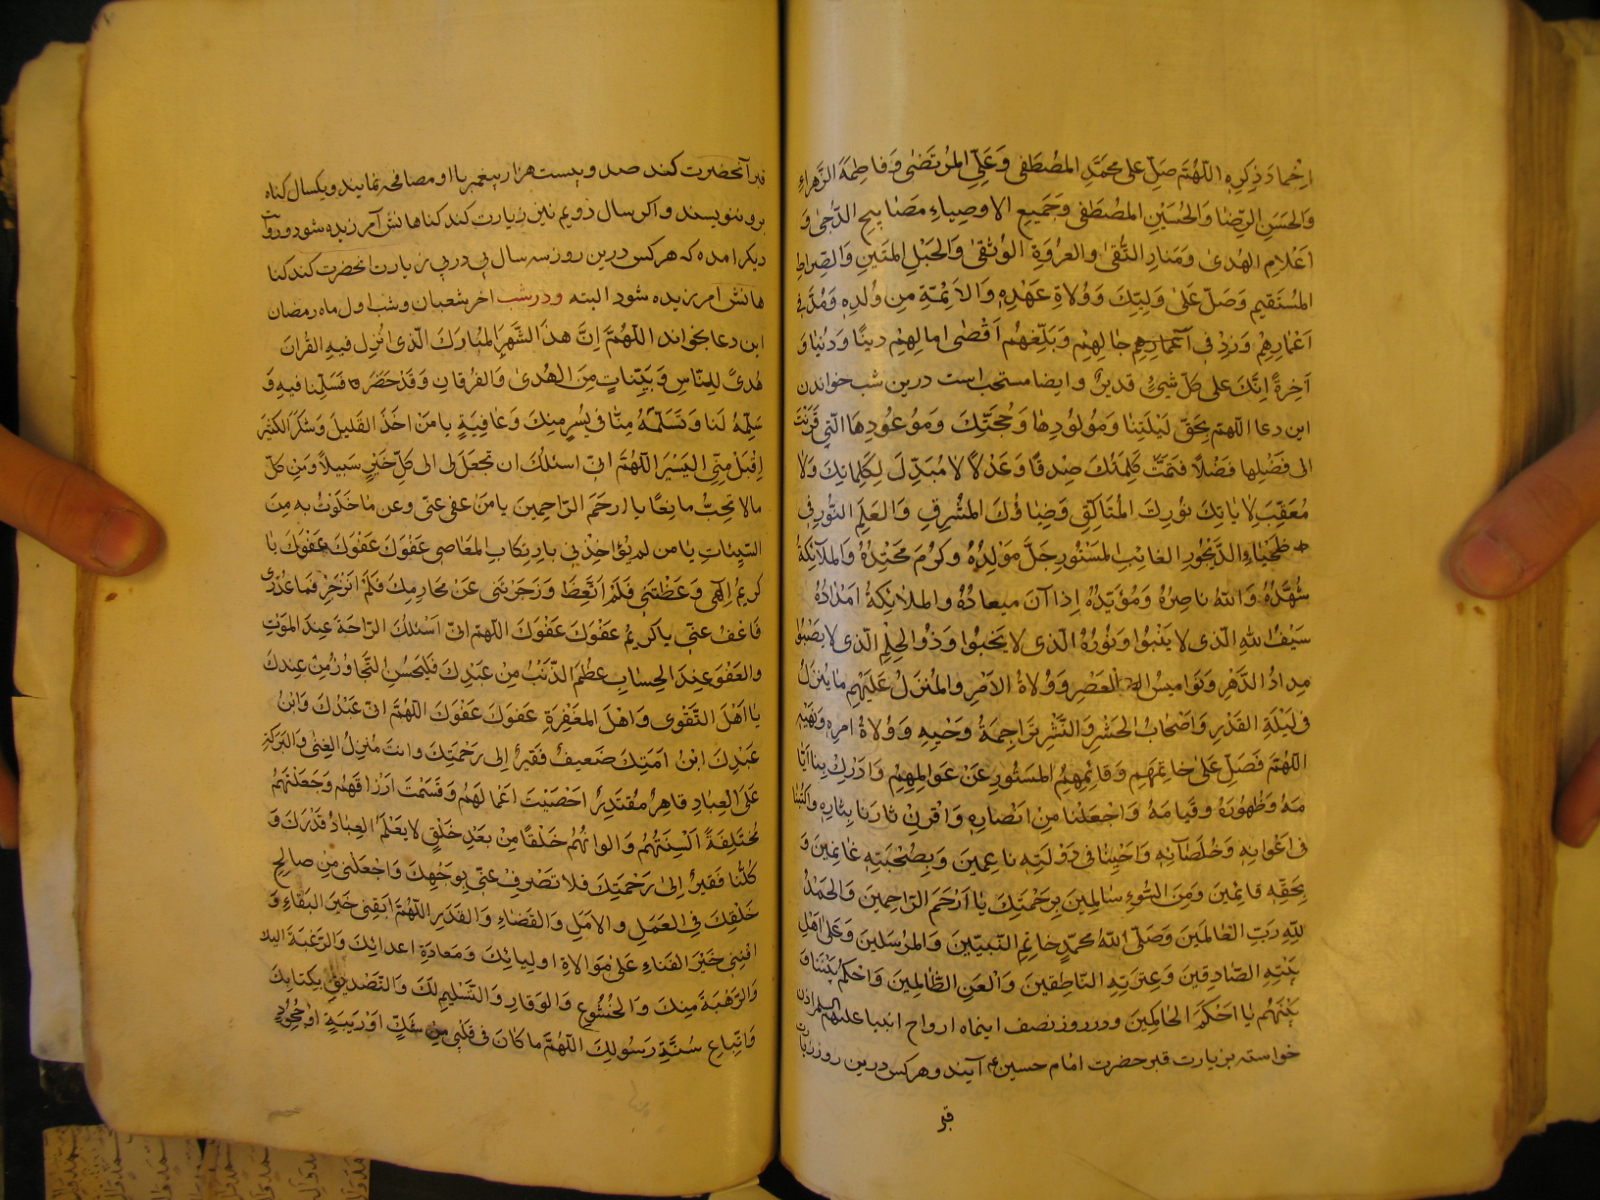 اِخْمادَ ذِكرِهِ اللّٰهُمَّ صَلِّ عَلى محمَّدٍ المصْطَفى وَعَلِيٍّ المرْتَضٰى وَفاطِمَةَ الزَّهراءِ
وَالحَسَنِ الرِّضٰا وَالحُسَيْنِ المصْطَفى وَجَميعِ الاوصِياءِ مَصٰابيحِ الدُّجىٰ وَ
اَعْلامِ الهُدىٰ وَمَنارِ التُّقىٰ وَالعُروَةِ الوُثْقىٰ وَالحَبْلِ المتَينِ وَالصِّراطِ
المُسْتَقيمِ وَصَلِّ عَلىٰ وَلِيِّكَ وَوُلاةِ عَهْدِهِ وَالاَئِمَّةِ مِن وُلدِهِ وَمُدَّ في
اَعْمارِهِمْ وَزِدْ في آجالِهِمْ وَبَلِّغْهُمْ اَقْصٰى امالِهِمْ دينًا وَدُنْيٰا وَ
آخِرةً اِنَّكَ عَلى كلِّ شَيْءٍ قَديرٌ وايضا مستحب است درين شب خواندن
اين دعا اللّهمّ بِحَقِّ لَيْلَتِنٰا وَمَوْلُودِهٰا وَحُجَّتِكَ وَمَوْعُودِهَا الَّتي قَرَنْتَ
الى فَضْلِها فَضْلًا فَتَمَّتْ كَلِمَتُكَ صِدْقًا وَعَدْلًا لا مُبَدِّلَ لِكَلِماتِكَ وَلا
مُعَقِّبَ لِاٰياتِكَ نُورِكَ المُتَاَلِّقِ وَضِيٰاؤُكَ المُشْرِقِ وَالعَلَمِ النُّورِ في
طَخْيٰاءِ الدَّيْجُورِ الغائِب المَسْتُورِ جَلَّ مَوْلِدُهُ وَكَرُمَ مَحْتِدُهُ وَالمَلآئِكَةُ
شُهَّدُهُ وَاللهُ ناصِرُهُ وَمُؤَيِّدُهُ اِذا آنَ ميعادُهُ والملائِكَةُ اَمْدٰادُهُ
سَيْفُ اللهِ الَّذى لا يَنْبُوا وَنُورُهُ الَّذى لا يَخْبُوا وَذُو الحِلْمِ الَّذى لا يَصْبُوا
مِدارُ الدَّهْرِ وَنَواميسُ العَصْرِ وَوُلاةُ الاَمْرِ والمُنَزَّلُ عَلَيْهِم مٰا يُنْزَلُ
في لَيْلَةِ القَدْرِ وَاَصْحابُ الحَشْرِ وَالنَّشْرِ تَراجِمَةُ وَحْيِهِ وَوُلاةُ امرِهِ وَنَهْيِهِ
اللّهمَّ فَصَلِّ عَلىٰ خاتِمِهِم وَقائِمِهِمُ المَسْتُورِ عَنْ عَوالِمِهِمْ وَاَدْرِكْ بِنا اَيّا
مَهُ وَظُهُورَهُ وَقِيامَهُ وَاجْعَلْنا مِنْ اَنْصارِهِ وَاقْرِنْ ثارَنا بِثارِهِ وَاكْتُبْنا
في اَعْوانِهِ وَخُلَصائِهِ وَاَحْيِنٰا في دَوْلَتِهِ ناعِمينَ وَبِصُحْبَتِهِ غانِمينَ وَ
بِحَقِّهِ قائِمينَ وَمِنَ السُّوءِ سٰالِمينَ بِرَحْمَتِكَ يٰا اَرْحَمَ الرّاحِمينَ وَالحَمْدُ
لِلّهِ رَبِّ العٰالَمينَ وَصَلَّى اللهُ محمّدٍ خاتِمِ النَّبِيّينَ وَالمُرْسَلينَ وَعَلىٰ اَهْلِ
بَيْتِهِ الصّادِقينَ وَعِتْرَتِهِ النّاطِقينَ وَالْعَنِ الظّالِمينَ وَاحْكُمْ بَيْنَنا وَ
بَيْنَهُمْ يٰا اَحْكَمَ الحاكِمينَ ودر روز نصف اينماه ارواح انبيا عليهم السلم اذن
خواسته بزيارت قبر حضرت امام حسين ع آيند وهركس درين روز زيارت
قبر
قبر آنحضرت كند صد وبيست هزار پيغمبر با او مصافحه نمايند ويكسال كناه
برو ننويسند و اكر سال دويم نيز زيارت كند كناهانش آمرزيده شود و در روايت
ديكر امده كه هركس درين روز سه سال پى درپى زيارت انحضرت كند كنا
هانش امرزيده شود البته ودر شب اخر شعبان وشب اول ماه رمضان
اين دعا بخواند اللّهُمَّ اِنَّ هذَا الشَّهْرَ المُبارَكَ الّذى اُنْزِل فيهِ القُرآنُ
هُدىً لِلنّاسِ وَبَيِّناتٍ مِنَ الهُدىٰ وَالفُرقانِ وَقَدْ حَضَرَ فَسَلِّمْنا فيهِ وَ
سَلِّمْهُ لَنا وَتَسَلَّمْهُ مِنّا في يُسْرٍ مِنكَ وَعافِيَةٍ يا مَنْ اَخَذَ القَليلَ وَشَكَرَ الكَثيرَ
اِقْبَلْ مِنّي اليَسيرَ اللّهُمَّ انّي اسئلُكَ ان تَجعَلَ لى الى كلِّ خَيْرٍ سَبيلاً وَمِن كلِّ
مالا تُحِبُّ مانِعًا يا ارحَمَ الرّاحِمينَ يا مَنْ عَفى عَنّي وعن مٰا خَلَوْتُ به مِنَ
السَّيِّئاتِ يٰا من لم يُؤاخِذْني بِارتِكابِ المعَاصي عَفْوَكَ عَفْوَكَ عَفْوَكَ يٰا
كريمُ اِلٰهي وَعَظْتَني فَلَمْ اَتَّعِظْ وَزَجَرْتَني عَنْ مَحارِمِكَ فَلَمْ اَنْزَجِرْ فَمٰا عُذْرى
فَاعْفُ عَنّي ياكَريمُ عَفْوَكَ عَفْوَكَ اللّهُمّ انّي اَسْئلُكَ الرّاحَةَ عِندَ المَوْتِ
والعَفْوَ عِندَ الحِسٰابِ عَظُمَ الذَّنْبُ مِنْ عَبدِكَ فَلْيَحْسُنِ التَّجاوُزُ مِنْ عِندِكَ
يٰا اَهْلَ التَّقْوى وَاهْلَ المغْفِرَةِ عَفوَكَ عَفْوَكَ اللّهُمَّ انّي عَبْدُكَ وَابْنُ
عَبْدِكَ ابْنُ اَمَتِكَ ضَعيفٌ فَقيرٌ اِلى رَحْمَتِكَ وانتَ مُنْزِلُ الغِنٰى وَالبَرَكَةِ
عَلَى العِبادِ قاهِرٌ مُقْتَدِرٌ احْصَيْتَ اَعمالَهُم وَقَسَمْتَ ارزاقَهُمْ وَجَعَلْتَهُمْ
مُختَلِفَةً اَلْسِنَتُهُمْ وَالوانُهُمْ خَلْقًا مِنْ بَعْدِ خَلْقٍ لا يَعْلَمُ العِبادُ قَدْرَكَ وَ
كُلُّنا فَقيرٌ اِلىٰ رَحْمَتِكَ فلا تَصْرِفْ عَنّي بِوَجْهِكَ وَاجْعَلْني مِنْ صالِحِ
خَلْقِكَ فِي العَمَلِ والاَمَلِ وَالقَضاءِ وَالقَدَرِ اللّهُمَّ اَبْقِني خَيْرَ البَقاءِ وَ
افْنِني خَيْرَ الفَناءِ عَلىٰ مُوالاةِ اوليائِكَ وَمُعاداةِ اعدائِكَ وَالرَّغبَةَ اليك
وَالرَّهْبَةَ مِنكَ وَالخُشُوعِ وَالوَقارِ وَالتَّسْليمِ لَكَ وَالتَّصْديقِ بِكِتابِكَ
وَاتِّباعِ سُنَّةِ رَسُولِكَ اللّهُمَّ ما كانَ في قَلْبي مِن شَكٍّ اَوْ رَيْبَةٍ اَوْ جُحُودٍ